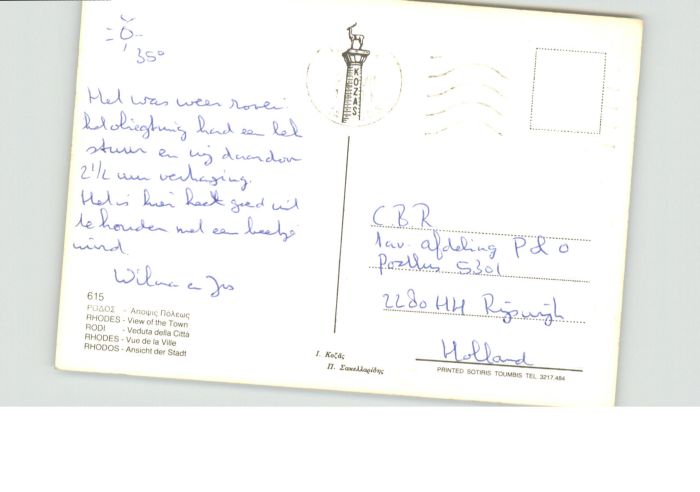 35°
Het was weer
had een
stuur en wij daardoor
2 1/2 uur vertraging.
Het is hier heel goed uit
te houden met een beetje
wind
Wilma en Jos
615
ΡΟΔΟΣ - Αποψις Πόλεως
RHODES - View of the Town
RODI - Veduta della Città
RHODES - Vue de la Ville
RHODOS - Ansicht der Stadt
KOZAS
Ι. Κοζάς
Π. Σακελλαρίδης
CBR
t.a.v. afdeling P & O
Postbus 5301
2280 HH Rijswijk
Holland
PRINTED SOTIRIS TOUMBIS TEL. 3217.484